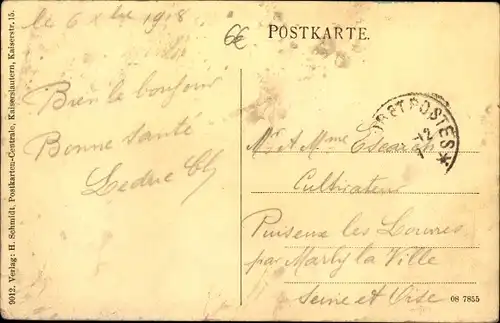 le 6 Xbre 1918
6€
POSTKARTE.
Bien le bonjour
Bonne santé
Leduc Ch
TRÉS. ET POSTES *
12
Mr et Mme
Cultivateur
Puiseux les Louvres
par Marly la Ville
Seine et Oise
9012. Verlag: H. Schmidt, Postkarten-Centrale, Kaiserslautern, Kaiserstr. 15.
08 7855